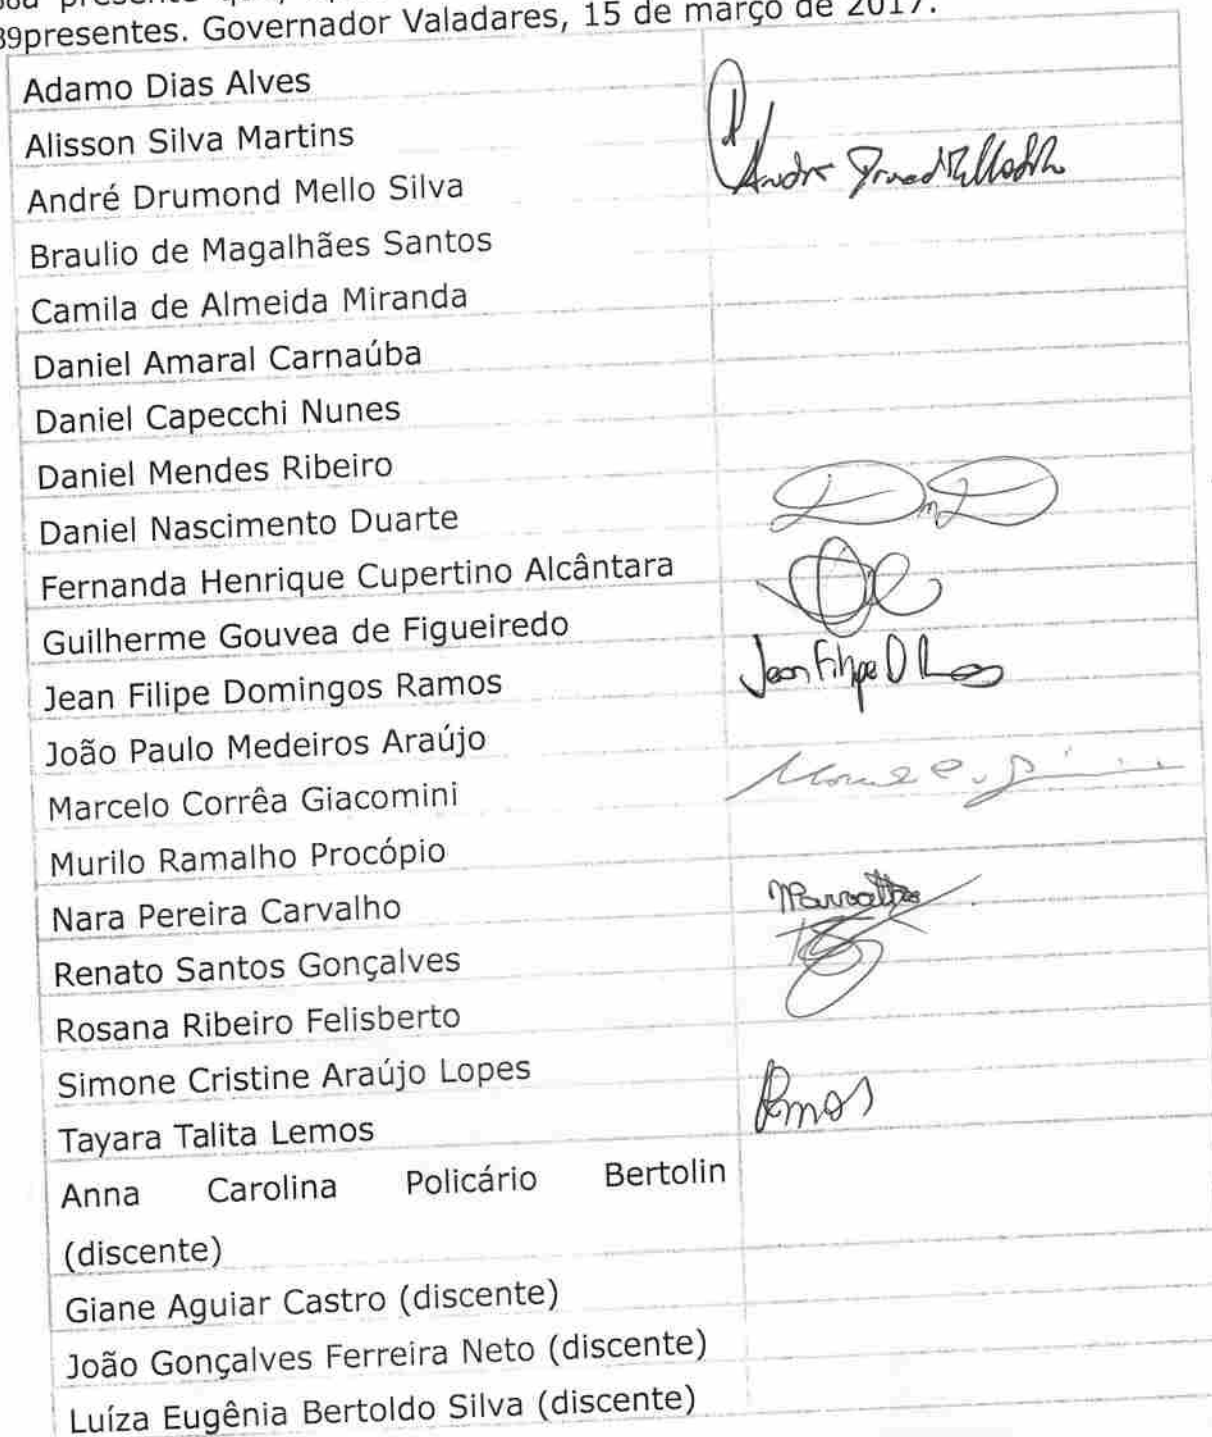 presente que,
89presentes. Governador Valadares, 15 de março de 2017.
Adamo Dias Alves
Alisson Silva Martins
André Drumond Mello Silva
Braulio de Magalhães Santos
Camila de Almeida Miranda
Daniel Amaral Carnaúba
Daniel Capecchi Nunes
Daniel Mendes Ribeiro
Daniel Nascimento Duarte
Fernanda Henrique Cupertino Alcântara
Guilherme Gouvea de Figueiredo
Jean Filipe Domingos Ramos Jean Filipe D
João Paulo Medeiros Araújo
Marcelo Corrêa Giacomini
Murilo Ramalho Procópio
Nara Pereira Carvalho
Renato Santos Gonçalves
Rosana Ribeiro Felisberto
Simone Cristine Araújo Lopes
Tayara Talita Lemos
Anna Carolina Policário Bertolin
(discente)
Giane Aguiar Castro (discente)
João Gonçalves Ferreira Neto (discente)
Luíza Eugênia Bertoldo Silva (discente)